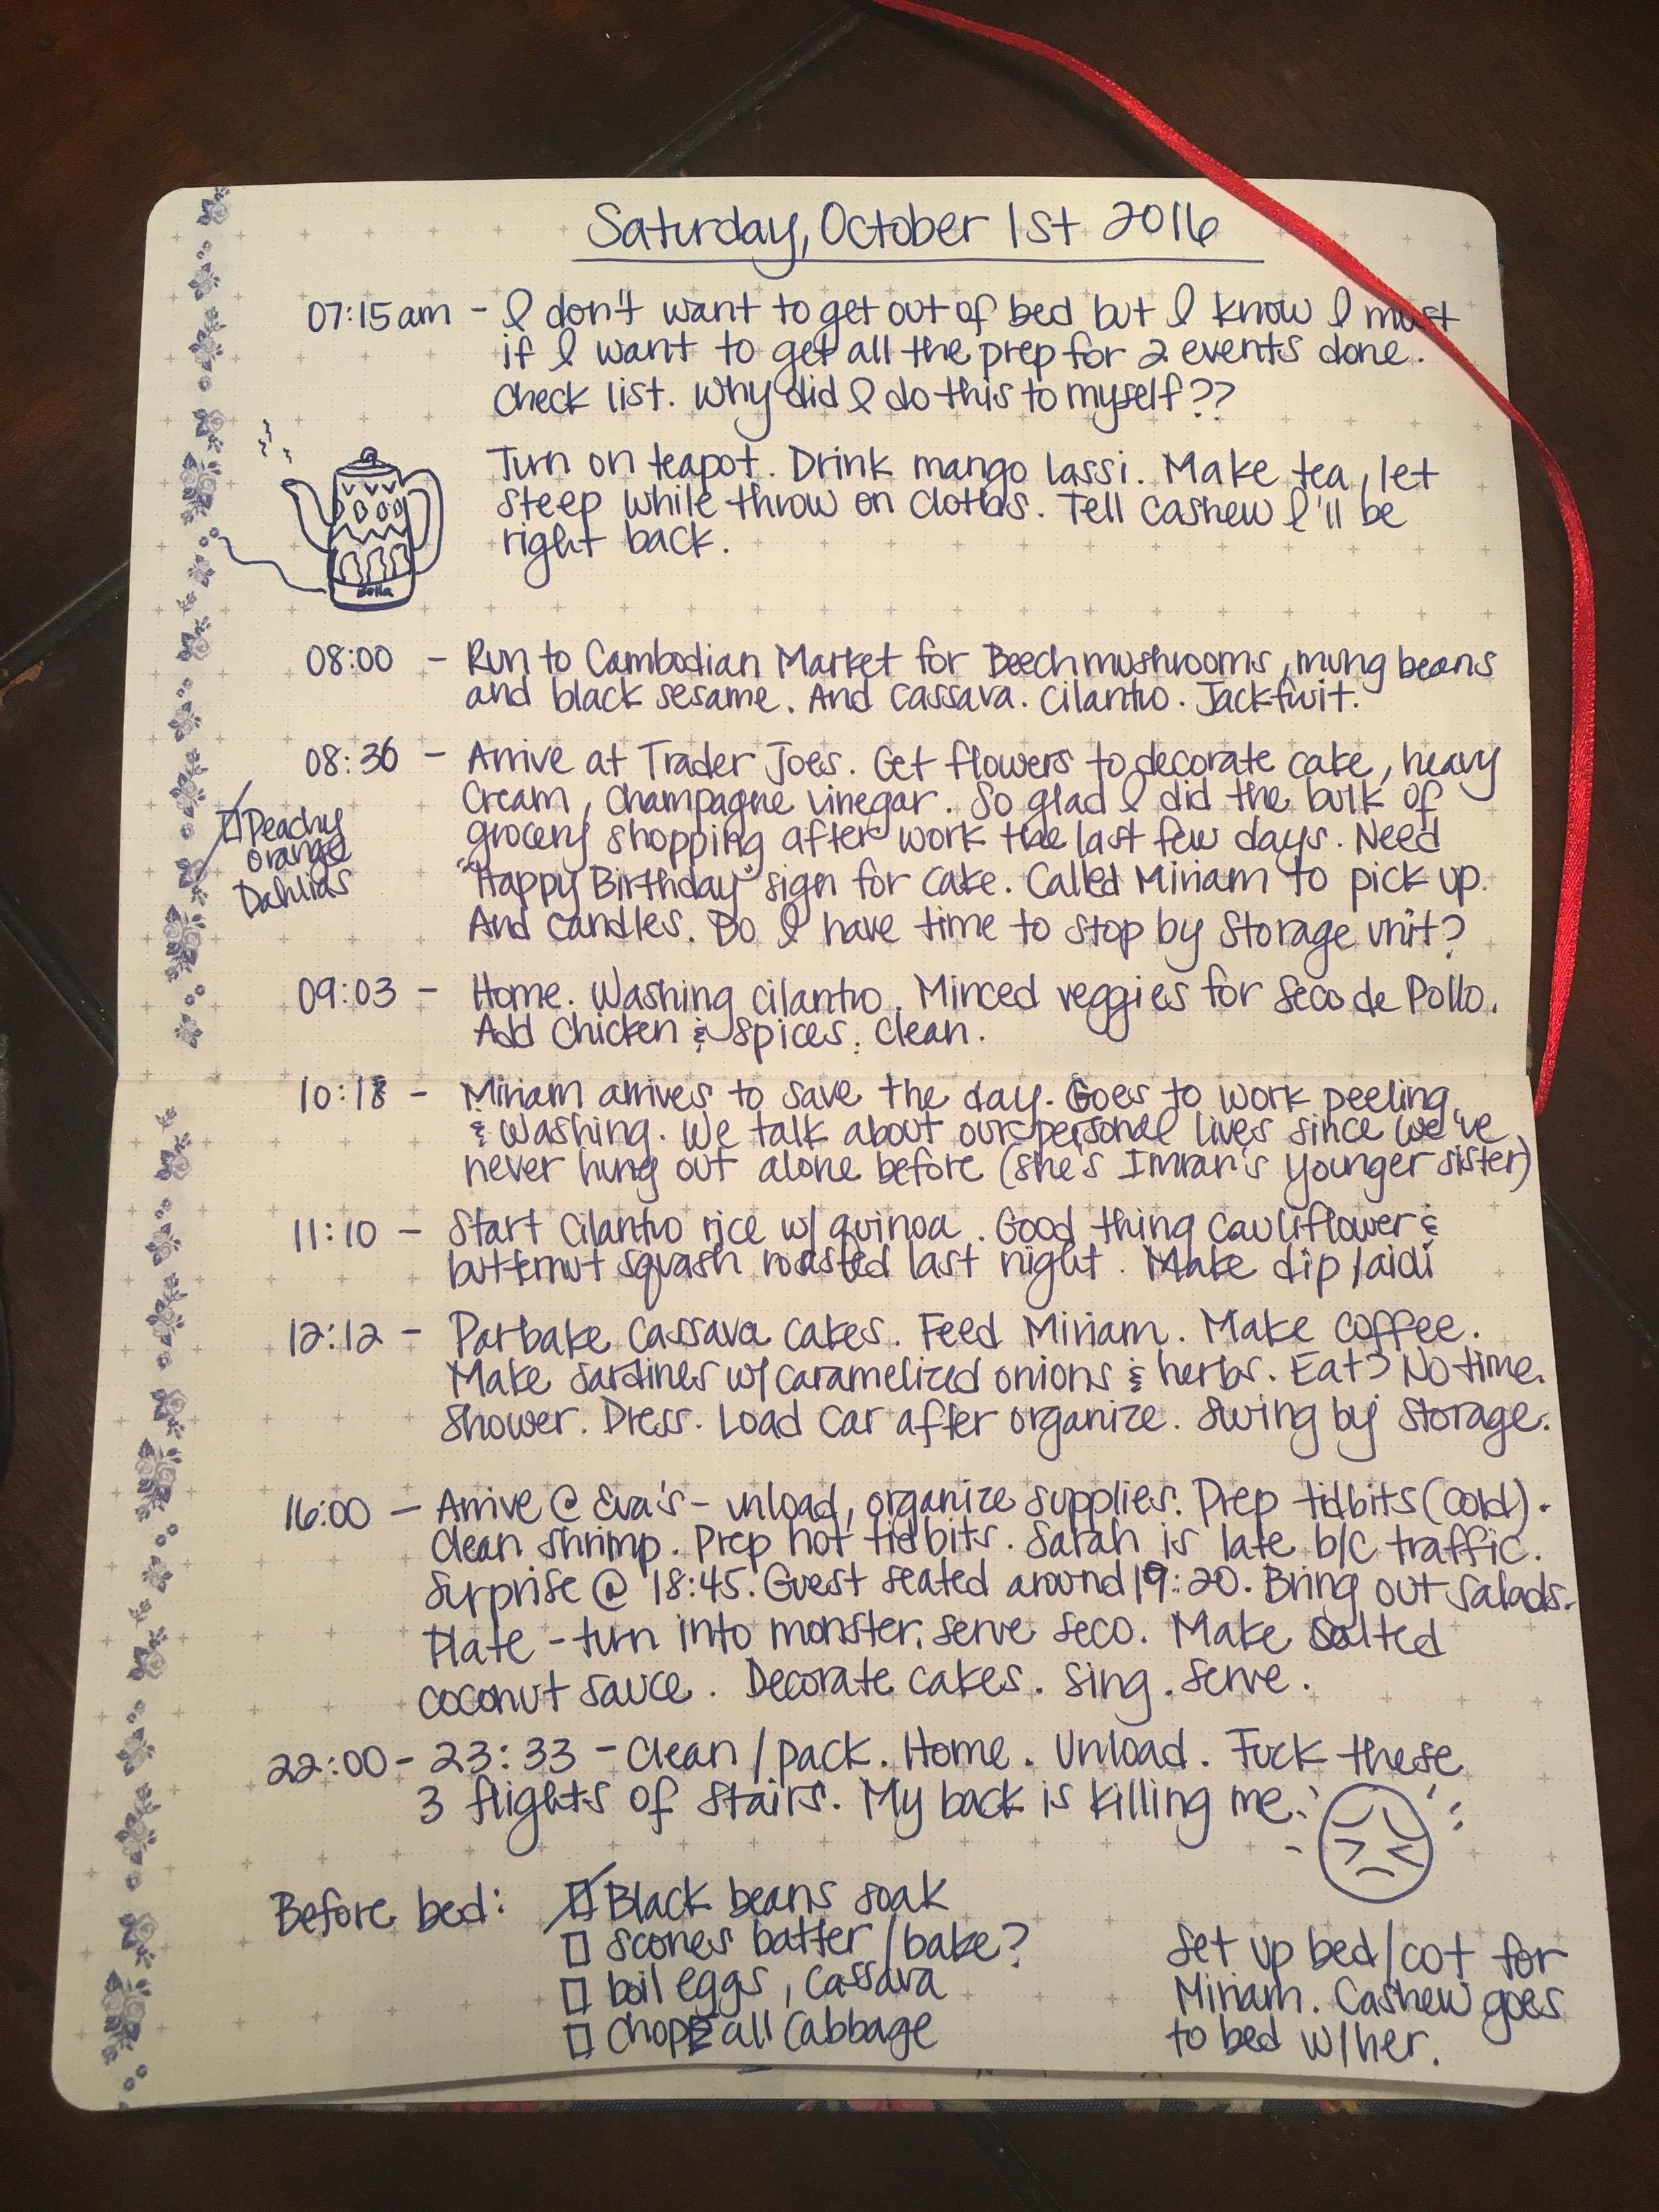 Saturday, October 1st 2016
07:15am - I don't want to get out of bed but I know I must
if I want to get all the prep for 2 events done.
Check list. Why did I do this to myself??
Turn on teapot. Drink mango lassi. Make tea, let
steep while throw on clothes. Tell Cashew I'll be
right back.
08:00 - Run to Cambodian Market for Beech mushrooms, mung beans
and black sesame. And cassava. Cilantro. Jackfruit.
08:36 - Arrive at Trader Joes. Get flowers to decorate cake, heavy
cream, champagne vinegar. So glad I did the bulk of
grocery shopping after work the last few days. Need
"Happy Birthday" sign for cake. Called Miriam to pick up.
And candles. Do I have time to stop by Storage unit?
Peachy
orange
Dahlias
09:03 - Home. Washing cilantro. Minced veggies for Seco de Pollo.
Add Chicken & spices. Clean.
10:18 - Miriam arrives to save the day. Goes to work peeling
& washing. We talk about our personal lives since we've
never hung out alone before (she's Imran's younger sister)
11:10 - Start Cilantro rice w/ quinoa. Good thing cauliflower &
butternut squash roasted last night. Make dip/aidi
12:12 - Parbake Cassava cakes. Feed Miriam. Make coffee.
Make sardines w/ caramelized onions & herbs. Eat? No time.
Shower. Dress. Load car after organize. Swing by Storage.
16:00 - Arrive @ Eva's - unload, organize supplies. Prep tidbits (cold).
Clean shrimp. Prep hot tidbits. Sarah is late b/c traffic.
Surprise @ 18:45. Guest seated around 19:20. Bring out salads.
Plate - turn into monster, serve seco. Make Salted
coconut sauce. Decorate cakes. Sing. Serve.
22:00 - 23:33 - Clean / pack. Home. Unload. Fuck these
3 flights of stairs. My back is killing me.
Before bed: Black beans soak
scones batter / bake?
boil eggs, cassava
chop all cabbage
Set up bed/cot for
Miriam. Cashew goes
to bed w/ her.